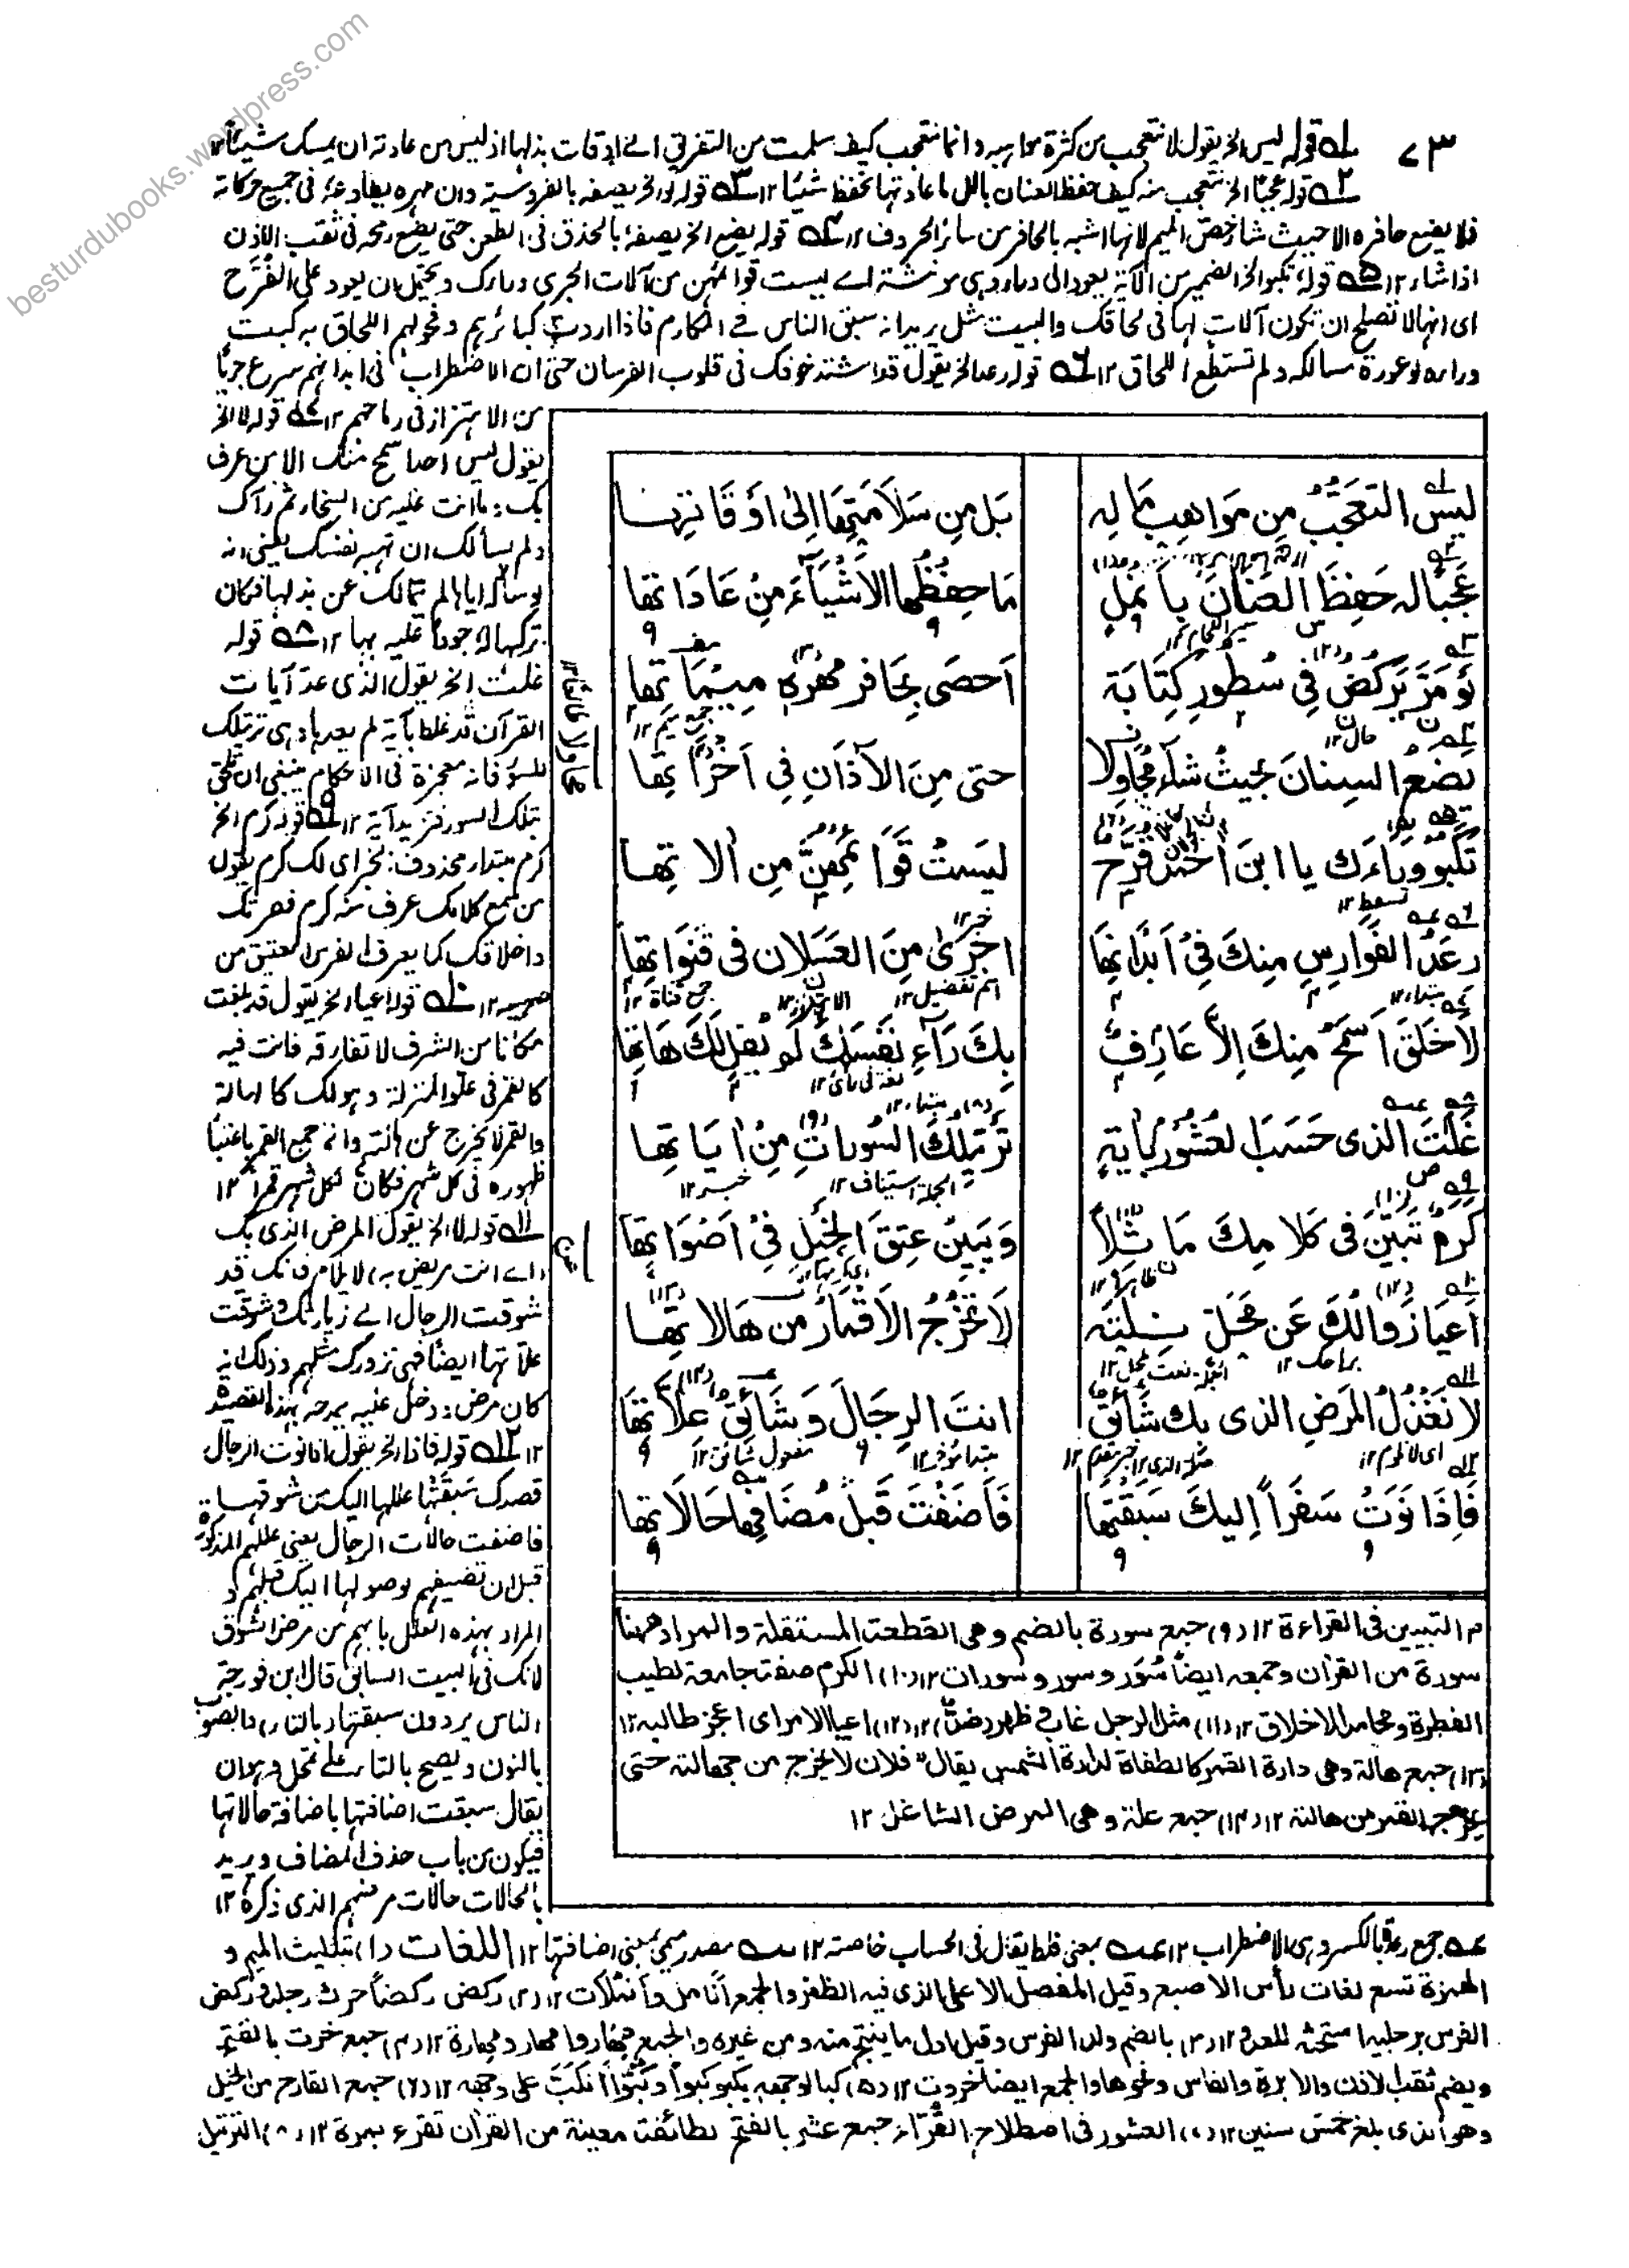 besturdubooks.wordpress.com
٧٣
١ قوله ليس الخ يقول لا نتعجب من كثرة مواهبه وانما نتعجب كيف سلمت من التفريق الى اوقات بذلها اذ ليس من عادته ان يمسك شيئا ١٢
٢ قوله عجبًا الخ نتعجب منه كيف حفظ العنان بانمل ما عادتها تحفظ شيئا ١٢ ٣ قوله لو مر الخ يصفه بالفروسية وان مهره يطاوعه فى جميع حركاته
فلا يضع حافره الا حيث شاء وخص الميم لانها اشبه بالحافر من سائر الحروف ١٢ ٤ قوله يضع الخ يصفه بالحذق فى الطعن حتى يضع رمحه فى ثقب الاذن
اذا شاء ١٢ ٥ قوله تكبو الخ الضمير من آلاته يعود الى وراء وهى مؤنثة اے ليست قوائمهن من آلات الجرى وراءك ويحتمل ان يعود على القرّح
اى انها لا تصلح ان تكون آلات لها فى لحاقك والبيت مثل يريد انه سبق الناس فى المكارم فاذا اردت كبائرهم ونحولهم اللحاق به كبت
وراءه لوعورة مسالكه ولم تستطع اللحاق ١٢ ٦ قوله رعد الخ يقول قد اشتد خوفك فى قلوب الفرسان حتى ان الاضطراب فى ابدانهم سرع جريًا
من الاهتزاز فى رماحهم ١٢ ٧ قوله لا الخ
يقول ليس احد اسمح منك الا من عرف
بك ما انت عليه من السخاء ثم رآك
ولم يسألك ان تهبه نفسك يعنى انه
لو سألك اياها لم تتمالك عن بذلها فكان
تركها له جودًا عليه بها ١٢ ٨ قوله
غلت الخ يقول الذى عد آيات
القرآن قد غلط بآية لم يعدها وهى ترتيلك
للسور فانه معجزة فى الاحكام ينبغى ان تلحق
بتلك السور فتزيد آية ١٢ ٩ قوله كرم الخ
كرم مبتدأ محذوف الخبر اى لك كرم يقول
من سمع كلامك عرف منه كرم فصرتك
واخلاقك كما يعرف الفرس العتيق من
صهيله ١٢ ١٠ قوله اعيا الخ يقول قد بلغت
مكانا من الشرف لا تفارقه فانت فيه
كالقمر فى علو المنزلة وهو لك كالهالة
والقمر لا يخرج عن هالته وانما جمع القمر باعتبار
ظهوره فى كل شهر فكان لكل شهر قمرا ١٢
١١ قوله لا الخ يقول المرض الذى بك
(اے انت مريض به) لا يلام فانك قد
شوقت الرجال الى زيارتك وشوقت
علاتها ايضًا فهى تزورك مثلهم وذلك انه
كان مرض فدخل عليه يمدحه بهذه القصيدة
١٢ ١٢ قوله فاذا الخ يقول اذا نوت الرجال
قصدك سبقتها عللها اليك من شوقها
فاضفت حالات الرجال يعنى عللهم المذكورة
قبل ان تضيفهم لوصولها اليك قبلهم و
المراد بهذه العلل ما بهم من مرض الشوق
لانك فى البيت السابق قال ابن فورجة
الناس يردون سبقتها (بالتاء) والصواب
بالنون ويصح بالتاء على تمحل وهو ان
يقال سبقت اضافتها باضافة حالاتها
فيكون من باب حذف المضاف ويريد
بالحالات حالات مرضهم الذى ذكره ١٢
ليس التعجّبُ مِن مَواهِبِ مَا لِه بَل مِن سَلَامَتِهَا اِلىٰ اَوْقَاتِهَا
عَجَبًا له حَفِظَ العِنَانَ بِاَنمُلٍ مَا حِفْظُهَا الاَشْيَاءَ مِنْ عَادَاتِهَا
لَوْ مَرَّ يَركُضُ فِي سُطُورِ كِتَابَةٍ اَحصَى بِحَافرِ مُهْرِهٖ مِيمَاتِهَا
حال ١٢ جمع ميم ١٢
يَضَعُ السِنانَ بحيثُ شاءَ مُجَاوِلًا حتى مِنَ الآذَانِ فِي اَخْرَاتِهَا
تَكْبُو وراءَك يا ابنَ اَحمَدَ قُرَّحٌ ليسَتْ قَوَائمُهنَّ مِن اٰلاتِهَا
تسقط ١٢ خبر ١٢
رِعَدُ الفَوارِسِ مِنكَ فِيْ اَبْدَانِهَا اَجْرىٰ مِنَ العَسَلانِ فى قَنَوَاتِهَا
مبتداء ١٢ اسم تفضيل ١٢ الاهتزاز ١٢ جمع قناة ١٢
لا خَلقَ اَسمَحُ مِنكَ اِلَّا عَارِفٌ بِكَ رَاءَ نَفسَكَ لَم يَقُل لَكَ هَاتِهَا
لغة فى رأى ١٢ مبتداء ١٢
غَلِتَ الذى حَسَبَ العُشُورَ بِاٰيَةٍ تَرْتِيلُكَ السُوراتِ مِنْ اٰيَاتِهَا
الجملة استيناف ١٢ خبر ١٢
كَرَمٌ تَبَيَّنَ فى كَلامِكَ مَاثِلًا وَيَبِينُ عِتقُ الخَيْلِ فِيْ اَصْوَاتِهَا
ظاهرا ١٢
اَعيَا زَوالُكَ عَن مَحَلٍّ نِلْتَه لَا تَخْرُجُ الاَقْمَارُ مِن هَالاتِهَا
براحك ١٢ الجملة نعت لمحل ١٢
لا نَعْذُلُ المَرَضَ الذى بك شَائِقٌ انتَ الرِجَالَ وَشَائِقٌ عِلَّاتِهَا
اى لا نلوم ١٢ خبر مقدم ١٢ مبتدا مؤخر ١٢ مفعول شائق ١٢
فَاِذَا نَوَتْ سَفَرًا اِليكَ سَبَقْنَهَا فَاَضَفْتَ قَبلَ مُضَافِها حَالَاتِهَا
م التبيين فى القراءة ١٢ (٩) جمع سورة بالضم وهى القطعة المستقلة والمراد ههنا
سورة من القرآن وجمعه ايضًا سُوَر وسور وسورات ١٢ (١٠) الكرم صفة جامعة لطيب
الفطرة ومحامد الاخلاق ١٢ (١١) مثل الرجل غاب وظهر (ضد) ١٢ (١٢) اعيا الامر اى اعجز طالبه ١٢
(١٣) جمع هالة وهى دارة القمر كالطفاوة لدارة الشمس يقال فلان لا يخرج من جهالته حتى
يخرج القمر من هالته ١٢ (١٤) جمع علة وهى المرض الشاغل ١٢
جمع رعدة بالكسر وهى الاضطراب ١٢ بمعنى غلط يقال فى الحساب خاصة ١٢ مصدر ميمى بمعنى اضافتها ١٢ اللغات (١) بتثليث الميم و
الهمزة تسع لغات رأس الاصبع وقيل المفصل الاعلى الذى فيه الظفر والجمع اَنَامل واَنمُلات ١٢ (٢) ركض ركضًا حرك رجله وركض
الفرس برجليه استحثه للعدو ١٢ (٣) بالضم ولد الفرس وقيل اول ما ينتج منه ومن غيره والجمع مِهَار وامهار ومهارة ١٢ (٤) جمع خرت بالفتح
ويضم ثقب الاذن والابرة والفاس ونحوها والجمع ايضا خروت ١٢ (٥) كبا لوجهه يكبو كبوا وكُبُوًّا انكبّ على وجهه ١٢ (٦) جمع القارح من الخيل
وهو الذى بلغ خمس سنين ١٢ (٧) العشور فى اصطلاح القُرّاء جمع عشر بالفتح لطائفة معينة من القرآن تقرء بمرة ١٢ (٨) الترتيل